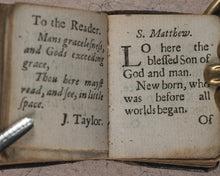 To the Reader.
Mans gracelesness,
and Gods exceeding
grace,
Thou here mayst
read, and see, in little
space.
J. Taylor.
S. Matthew.
LO here the
blessed Son of
God and man.
New born, who
was before all
worlds began.
Of